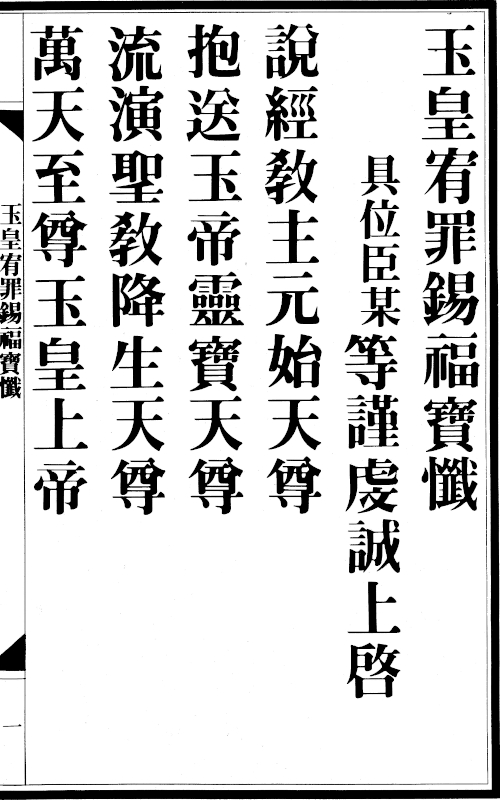 玉皇宥罪錫福寶懺
具位臣某等謹虔誠上啓
說經教主元始天尊
抱送玉帝靈寶天尊
流演聖教降生天尊
萬天至尊玉皇上帝
玉皇宥罪錫福寶懺
一